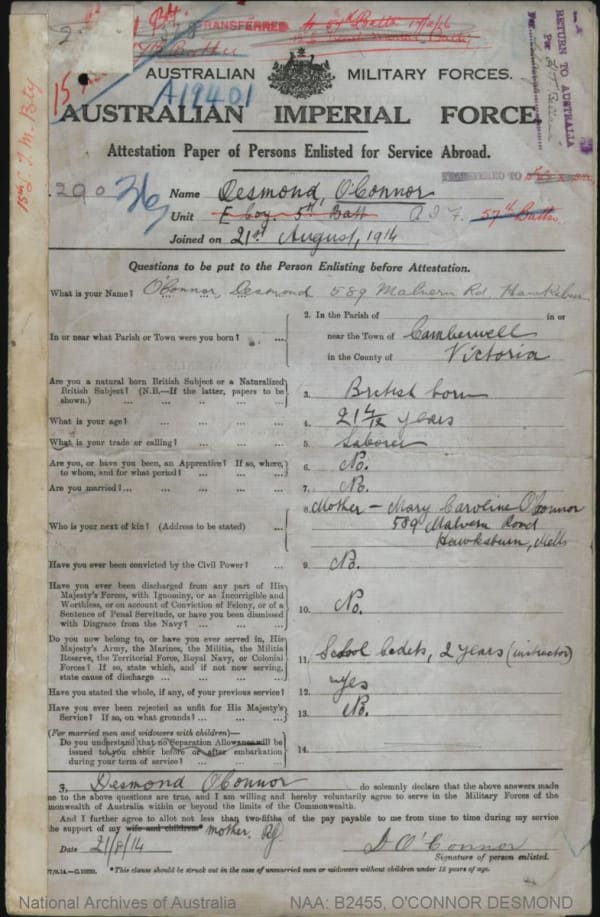 TRANSFERRED to 57th Battn
AUSTRALIAN MILITARY FORCES.
A19401
AUSTRALIAN IMPERIAL FORCE
RETURN TO AUSTRALIA
Per
Attestation Paper of Persons Enlisted for Service Abroad.
290
36
Name Desmond, O'Connor
Unit F Coy. 5th Batt A.I.F. 57th Battn
Joined on 21st August, 1914
Questions to be put to the Person Enlisting before Attestation.
What is your Name? ... O'Connor, Desmond 589 Malvern Rd
In or near what Parish or Town were you born? ...
2. In the Parish of in or
near the Town of Camberwell
in the County of Victoria
Are you a natural born British Subject or a Naturalized British Subject? (N.B.—If the latter, papers to be shown.) ... 3. British born
What is your age? ... 4. 21 4/12 years
What is your trade or calling? ... 5. Laborer
Are you, or have you been, an Apprentice? If so, where, to whom, and for what period? ... 6. No.
Are you married? ... 7. No.
Who is your next of kin? (Address to be stated) ... 8. Mother – Mary Caroline O'Connor
589 Malvern Road
Hawksburn, Melb
Have you ever been convicted by the Civil Power? ... 9. No.
Have you ever been discharged from any part of His
Majesty's Forces, with Ignominy, or as Incorrigible and
Worthless, or on account of Conviction of Felony, or of a
Sentence of Penal Servitude, or have you been dismissed
with Disgrace from the Navy? ... 10. No.
Do you now belong to, or have you ever served in, His
Majesty's Army, the Marines, the Militia, the Militia
Reserve, the Territorial Force, Royal Navy, or Colonial
Forces? If so, state which, and if not now serving,
state cause of discharge ... 11. School Cadets, 2 years (instructor)
Have you stated the whole, if any, of your previous service? 12. Yes
Have you ever been rejected as unfit for His Majesty's
Service? If so, on what grounds? ... 13. No.
(For married men and widowers with children)—
Do you understand that no Separation Allowance will be
issued to you either before or after embarkation
during your term of service? ... 14.
Desmond O'Connor do solemnly declare that the above answers made
me to the above questions are true, and I am willing and hereby voluntarily agree to serve in the Military Forces of the
monwealth of Australia within or beyond the limits of the Commonwealth.
And I further agree to allot not less than two-fifths of the pay payable to me from time to time during my service
the support of my wife and children* mother.
Date 21/8/14 D O'Connor
Signature of person enlisted.
*This clause should be struck out in the case of unmarried men or widowers without children under 18 years of age.
National Archives of Australia NAA: B2455, O'CONNOR DESMOND